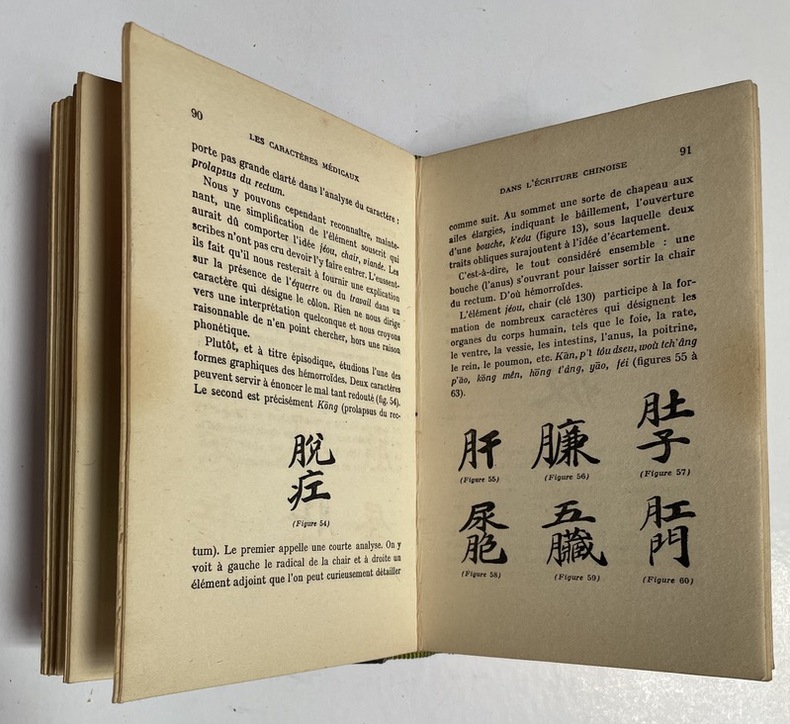 90
LES CARACTÈRES MÉDICAUX
porte pas grande clarté dans l'analyse du caractère :
prolapsus du rectum.
Nous y pouvons cependant reconnaître, mainte-
nant, une simplification de l'élément souscrit qui
aurait dû comporter l'idée jéou, chair, viande. Les
scribes n'ont pas cru devoir l'y faire entrer. L'eussent-
ils fait qu'il nous resterait à fournir une explication
sur la présence de l'équerre ou du travail dans un
caractère qui désigne le côlon. Rien ne nous dirige
vers une interprétation quelconque et nous croyons
raisonnable de n'en point chercher, hors une raison
phonétique.
Plutôt, et à titre épisodique, étudions l'une des
formes graphiques des hémorroïdes. Deux caractères
peuvent servir à énoncer le mal tant redouté (fig. 54).
Le second est précisément Kōng (prolapsus du rec-
脫
疘
(Figure 54)
tum). Le premier appelle une courte analyse. On y
voit à gauche le radical de la chair et à droite un
élément adjoint que l'on peut curieusement détailler
91
DANS L'ÉCRITURE CHINOISE
comme suit. Au sommet une sorte de chapeau aux
ailes élargies, indiquant le bâillement, l'ouverture
d'une bouche, k'eou (figure 13), sous laquelle deux
traits obliques surajoutent à l'idée d'écartement.
C'est-à-dire, le tout considéré ensemble : une
bouche (l'anus) s'ouvrant pour laisser sortir la chair
du rectum. D'où hémorroïdes.
L'élément jéou, chair (clé 130) participe à la for-
mation de nombreux caractères qui désignent les
organes du corps humain, tels que le foie, la rate,
le ventre, la vessie, les intestins, l'anus, la poitrine,
le rein, le poumon, etc. Kān, p'î tóu dseu, woù tch'âng
p'āo, kōng mên, hōng t'âng, yāo, féi (figures 55 à
63).
肝 臁 肚子
(Figure 55) (Figure 56) (Figure 57)
尿胞 五臟 肛門
(Figure 58) (Figure 59) (Figure 60)